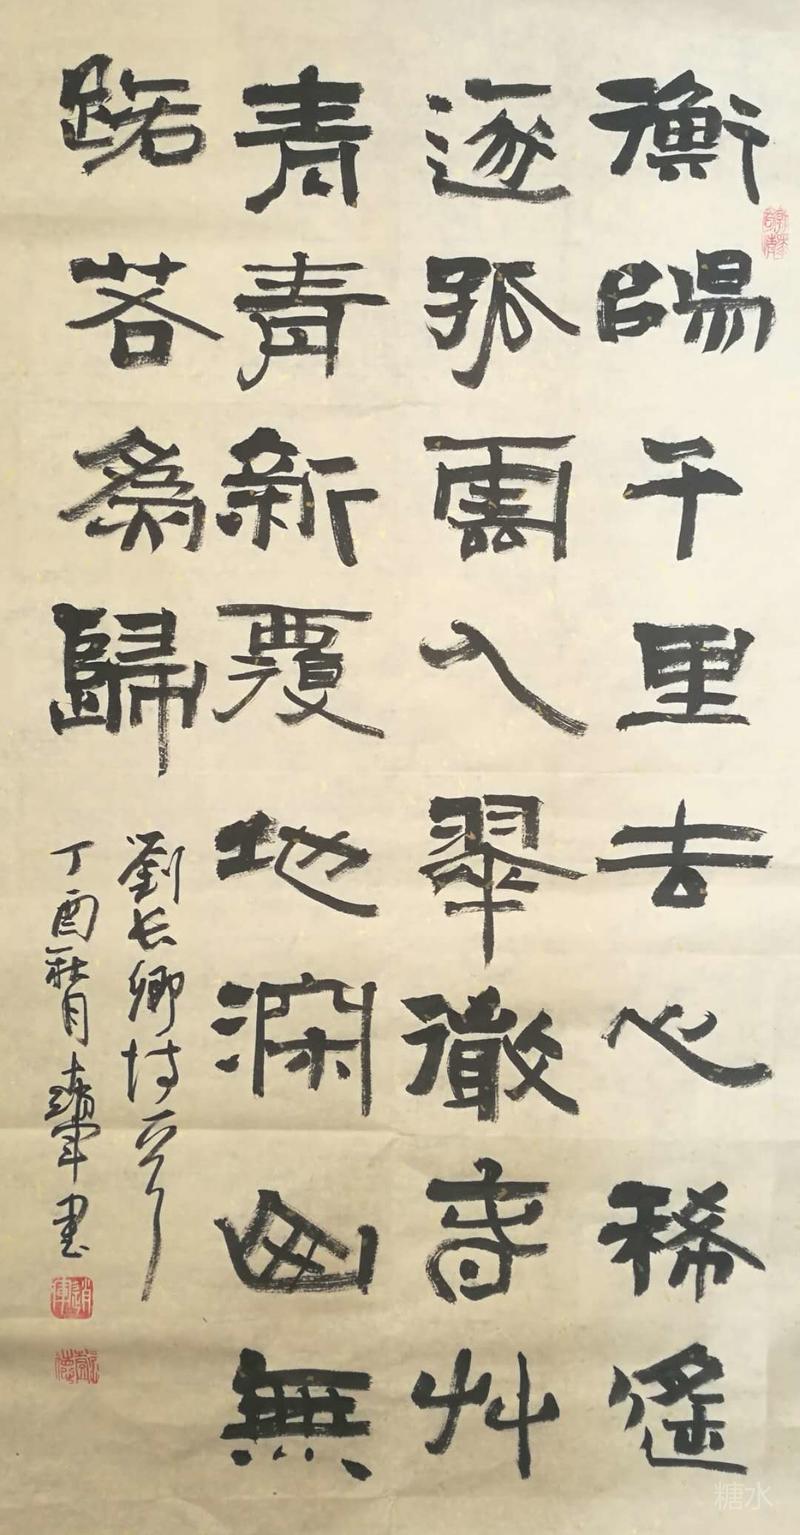 衡陽千里去心稀遙
逐孤雲入翠微春艸
青青新覆地深山無
路若為歸
劉長卿詩一首
丁酉秋月 軍書
糖水